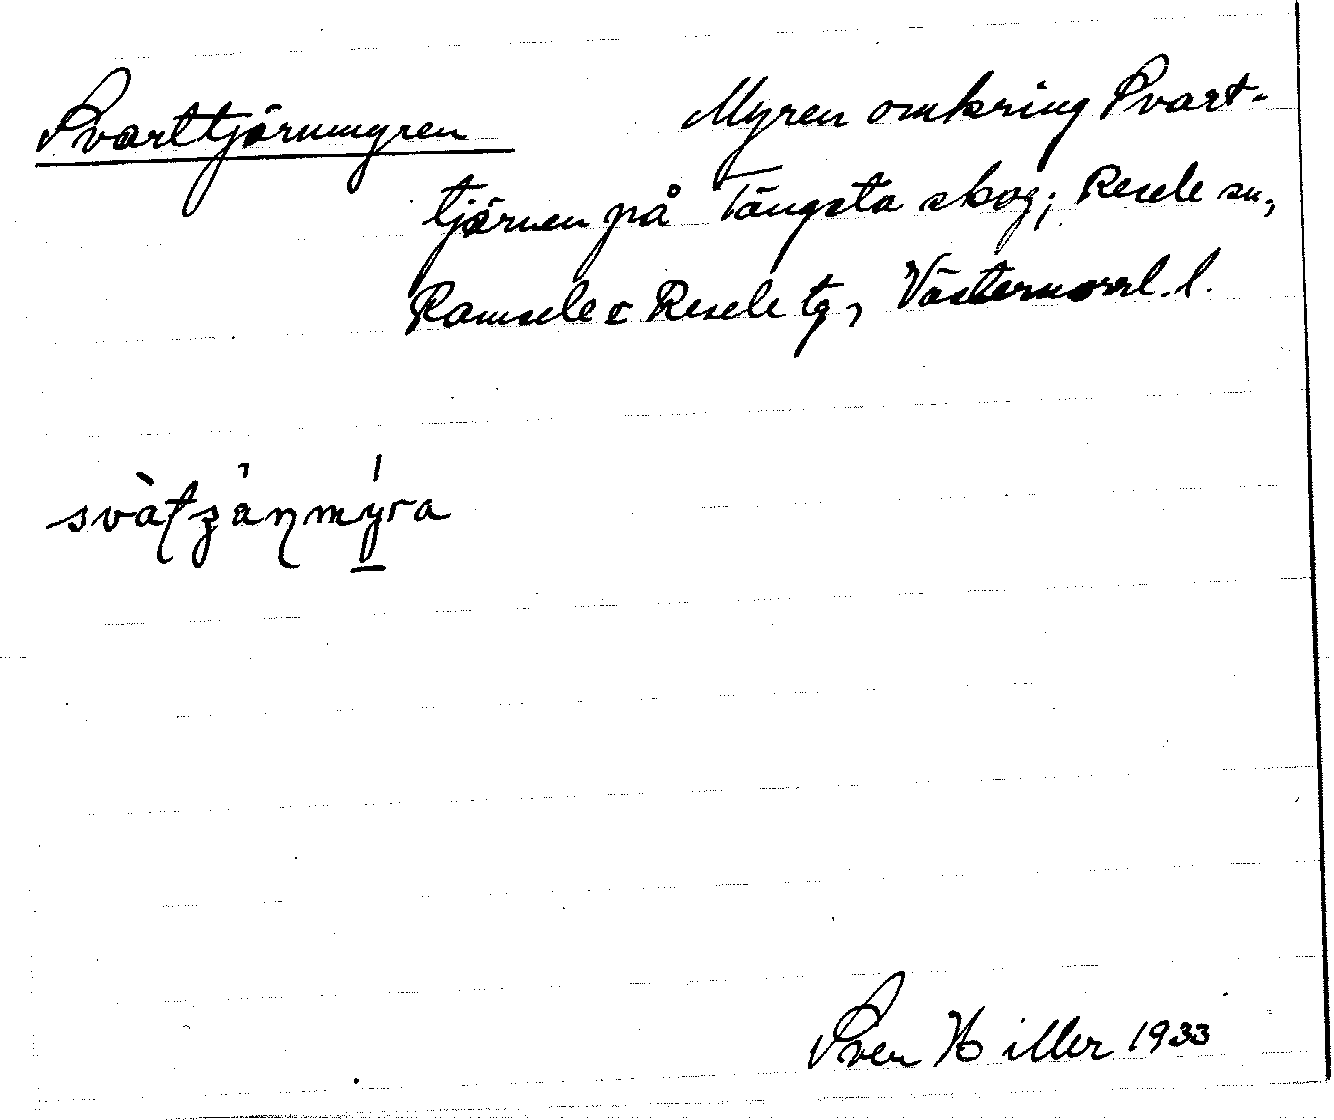 Svarttjärnmyren Myren omkring Svart-
tjärnen på Tängsta skog; Resele sn,
Ramsele o Resele tg, Västernorrl. l.
Sven Hiller 1933